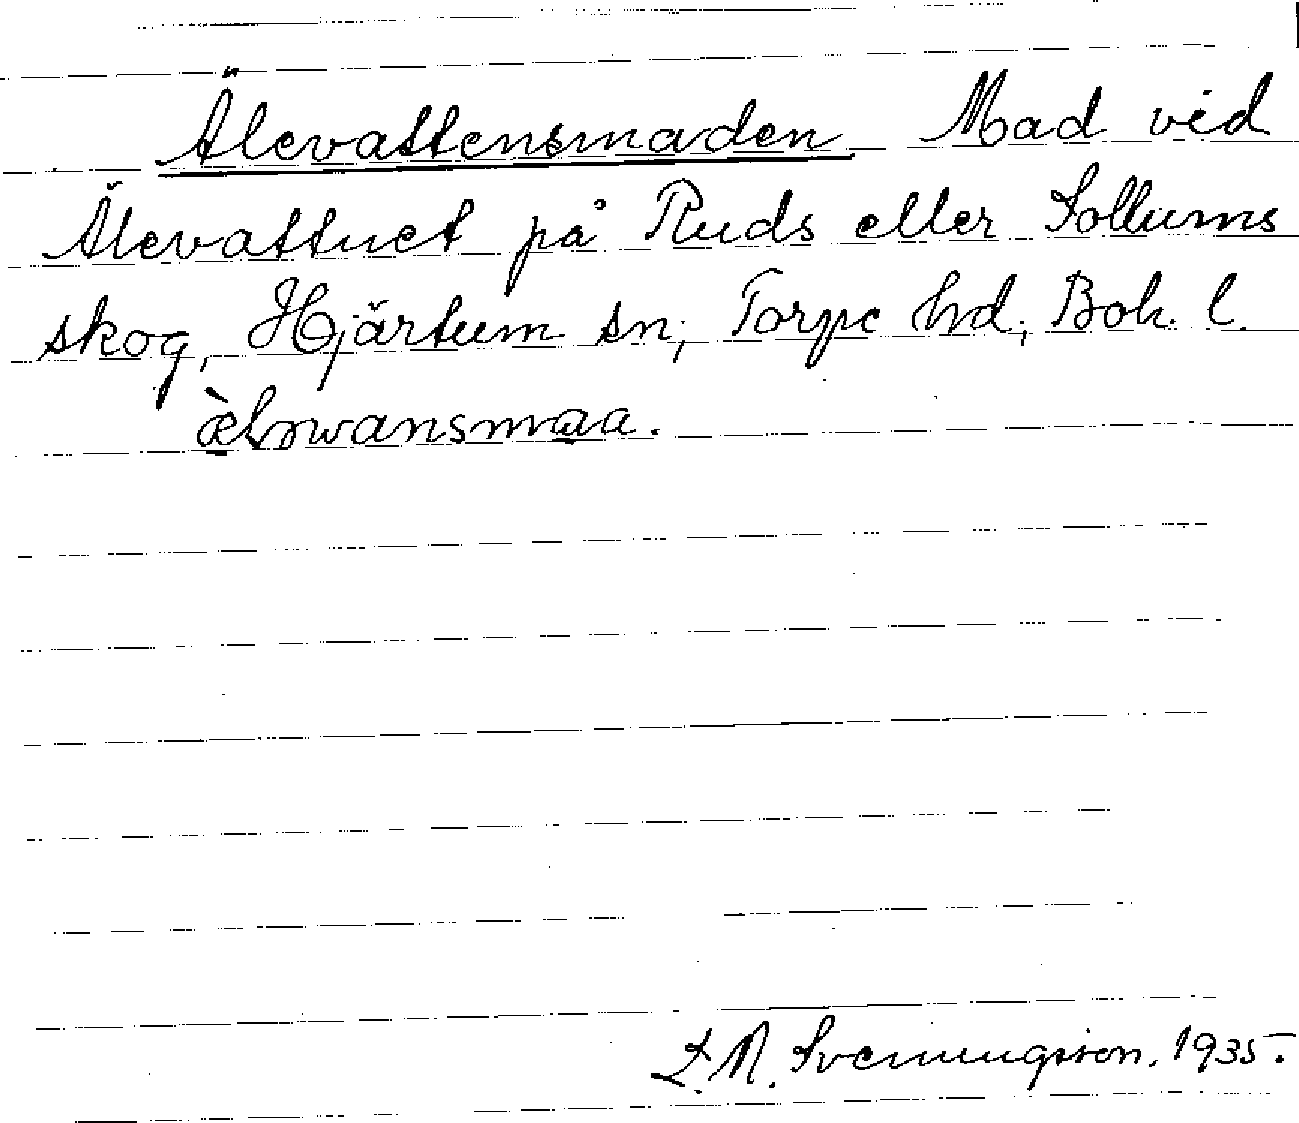 Älevattensmaden Mad vid
Älevattnet på Ruds eller Sollums
skog, Hjärtum sn, Torpe hd, Boh. l.
L. N. Svenungsson. 1935.